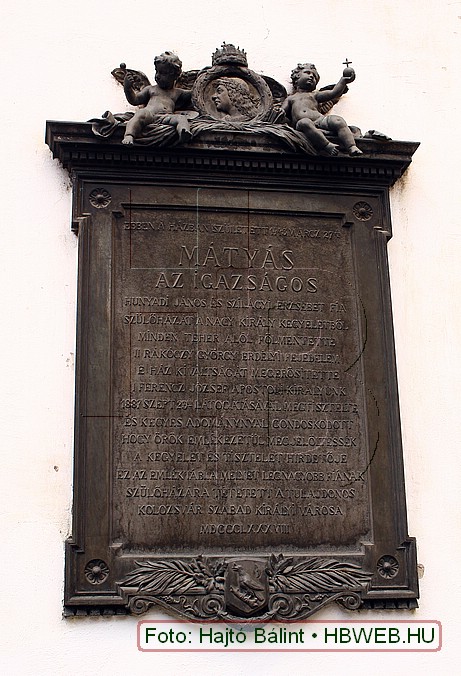 EBBEN A HÁZBAN SZÜLETETT
MÁTYÁS
AZ IGAZSÁGOS
HUNYADI JÁNOS ÉS SZILÁGYI ERZSÉBET FIA
SZÜLŐHÁZÁT A NAGY KIRÁLY KEGYELETBŐL
MINDEN TEHER ALÓL FÖLMENTETTE
II RÁKÓCZY GYÖRGY ERDÉLYI FEJEDELEM
E HÁZ KIVÁLTSÁGÁT MEGERŐSÍTETTE
I FERENCZ JÓZSEF APOSTOLI KIRÁLYUNK
SZEPT LÁTOGATÁSÁVAL MEGTISZTELTE
ÉS KEGYES ADOMÁNYNYAL GONDOSKODOTT
HOGY ÖRÖK EMLÉKEZETÜL MEGJELÖLTESSÉK
A KEGYELET ÉS TISZTELET HIRDETŐJE
EZ AZ EMLÉKTÁBLA MELYET LEGNAGYOBB FIÁNAK
SZÜLŐHÁZÁRA TÉTETETT A TULAJDONOS
KOLOZSVÁR SZABAD KIRÁLYI VÁROSA
MDCCCLXXXVIII
Foto: Hajtó Bálint • HBWEB.HU